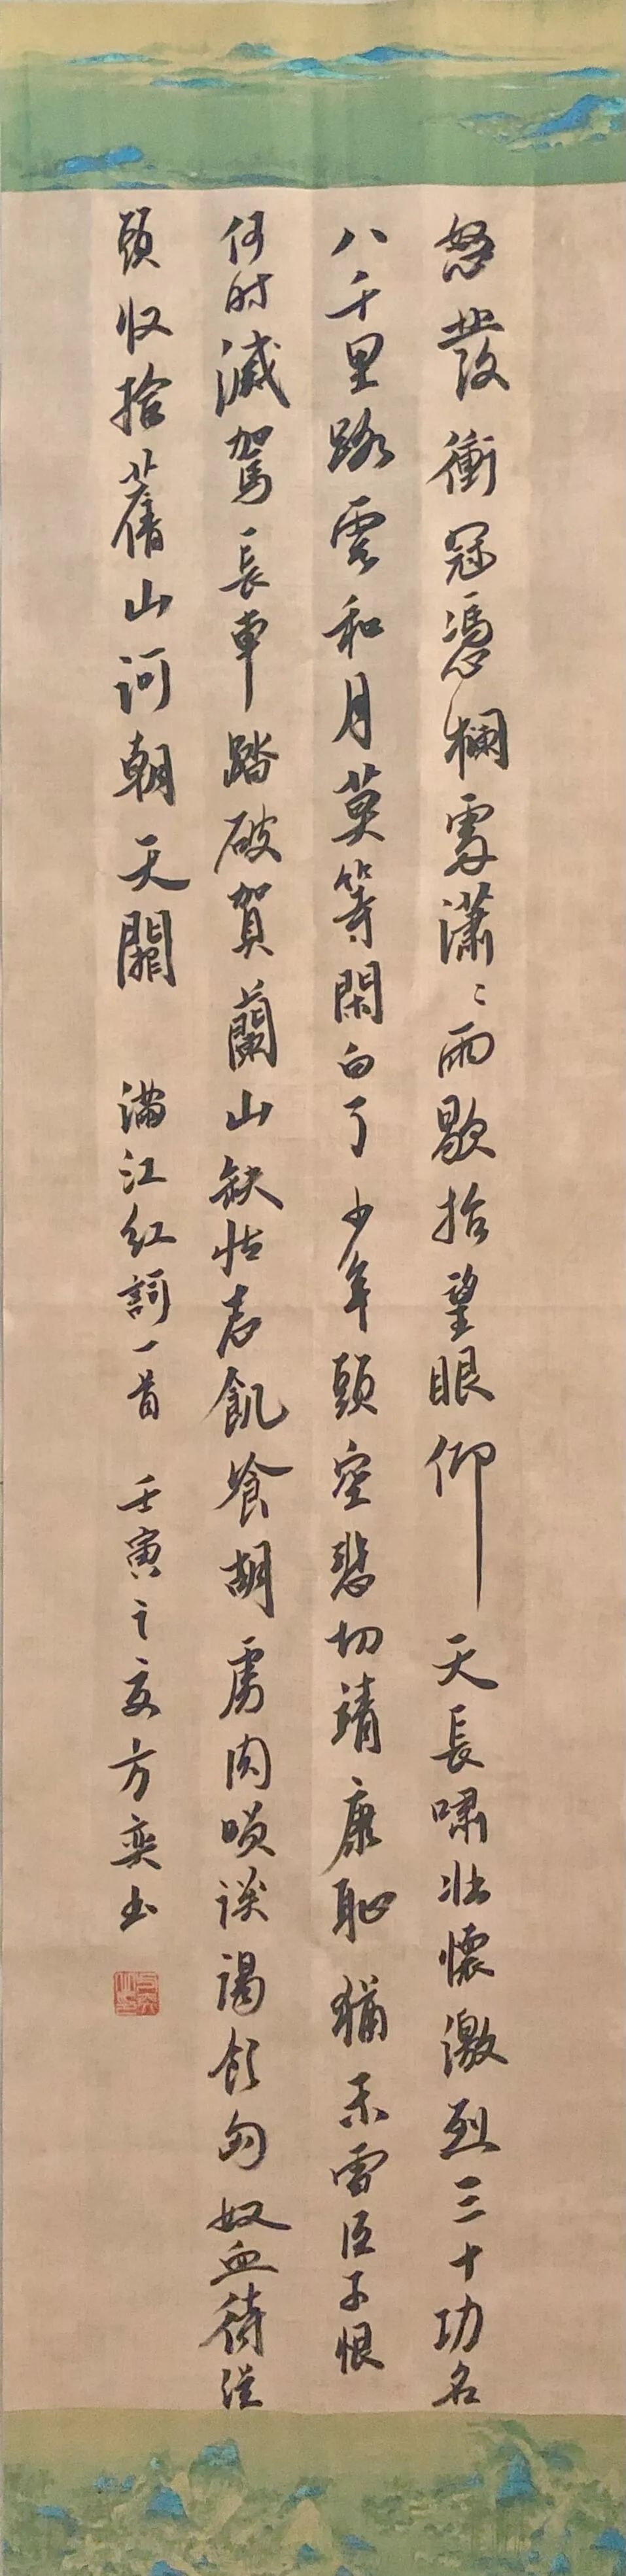 怒發衝冠憑欄處瀟〻雨歇抬望眼仰天長嘯壯懷激烈三十功名
八千里路雲和月莫等閑白了少年頭空悲切靖康恥猶未雪臣子恨
何時滅駕長車踏破賀蘭山缺壯志飢飡胡虜肉笑談渴飲匈奴血待從
頭收拾舊山河朝天闕 滿江紅詞一首 壬寅之夏方奕书